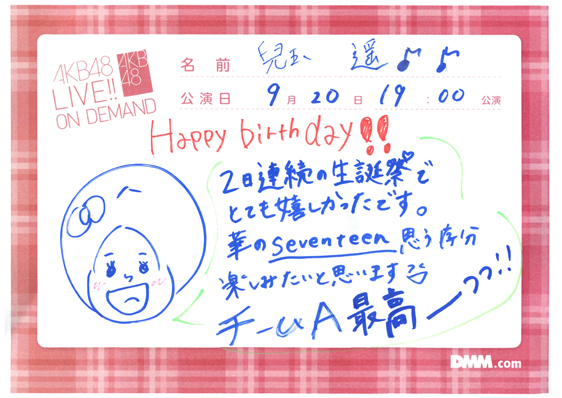 AKB48
LIVE!!
ON DEMAND
AKB
48
名 前 兒玉 遥♪♪
公演日 9月20日 19:00 公演
Happy birthday!!
2日連続の生誕祭♡で
とても嬉しかったです。
華のseventeen思う存分
楽しみたいと思います
チームA最高ーっっ!!
DMM.com